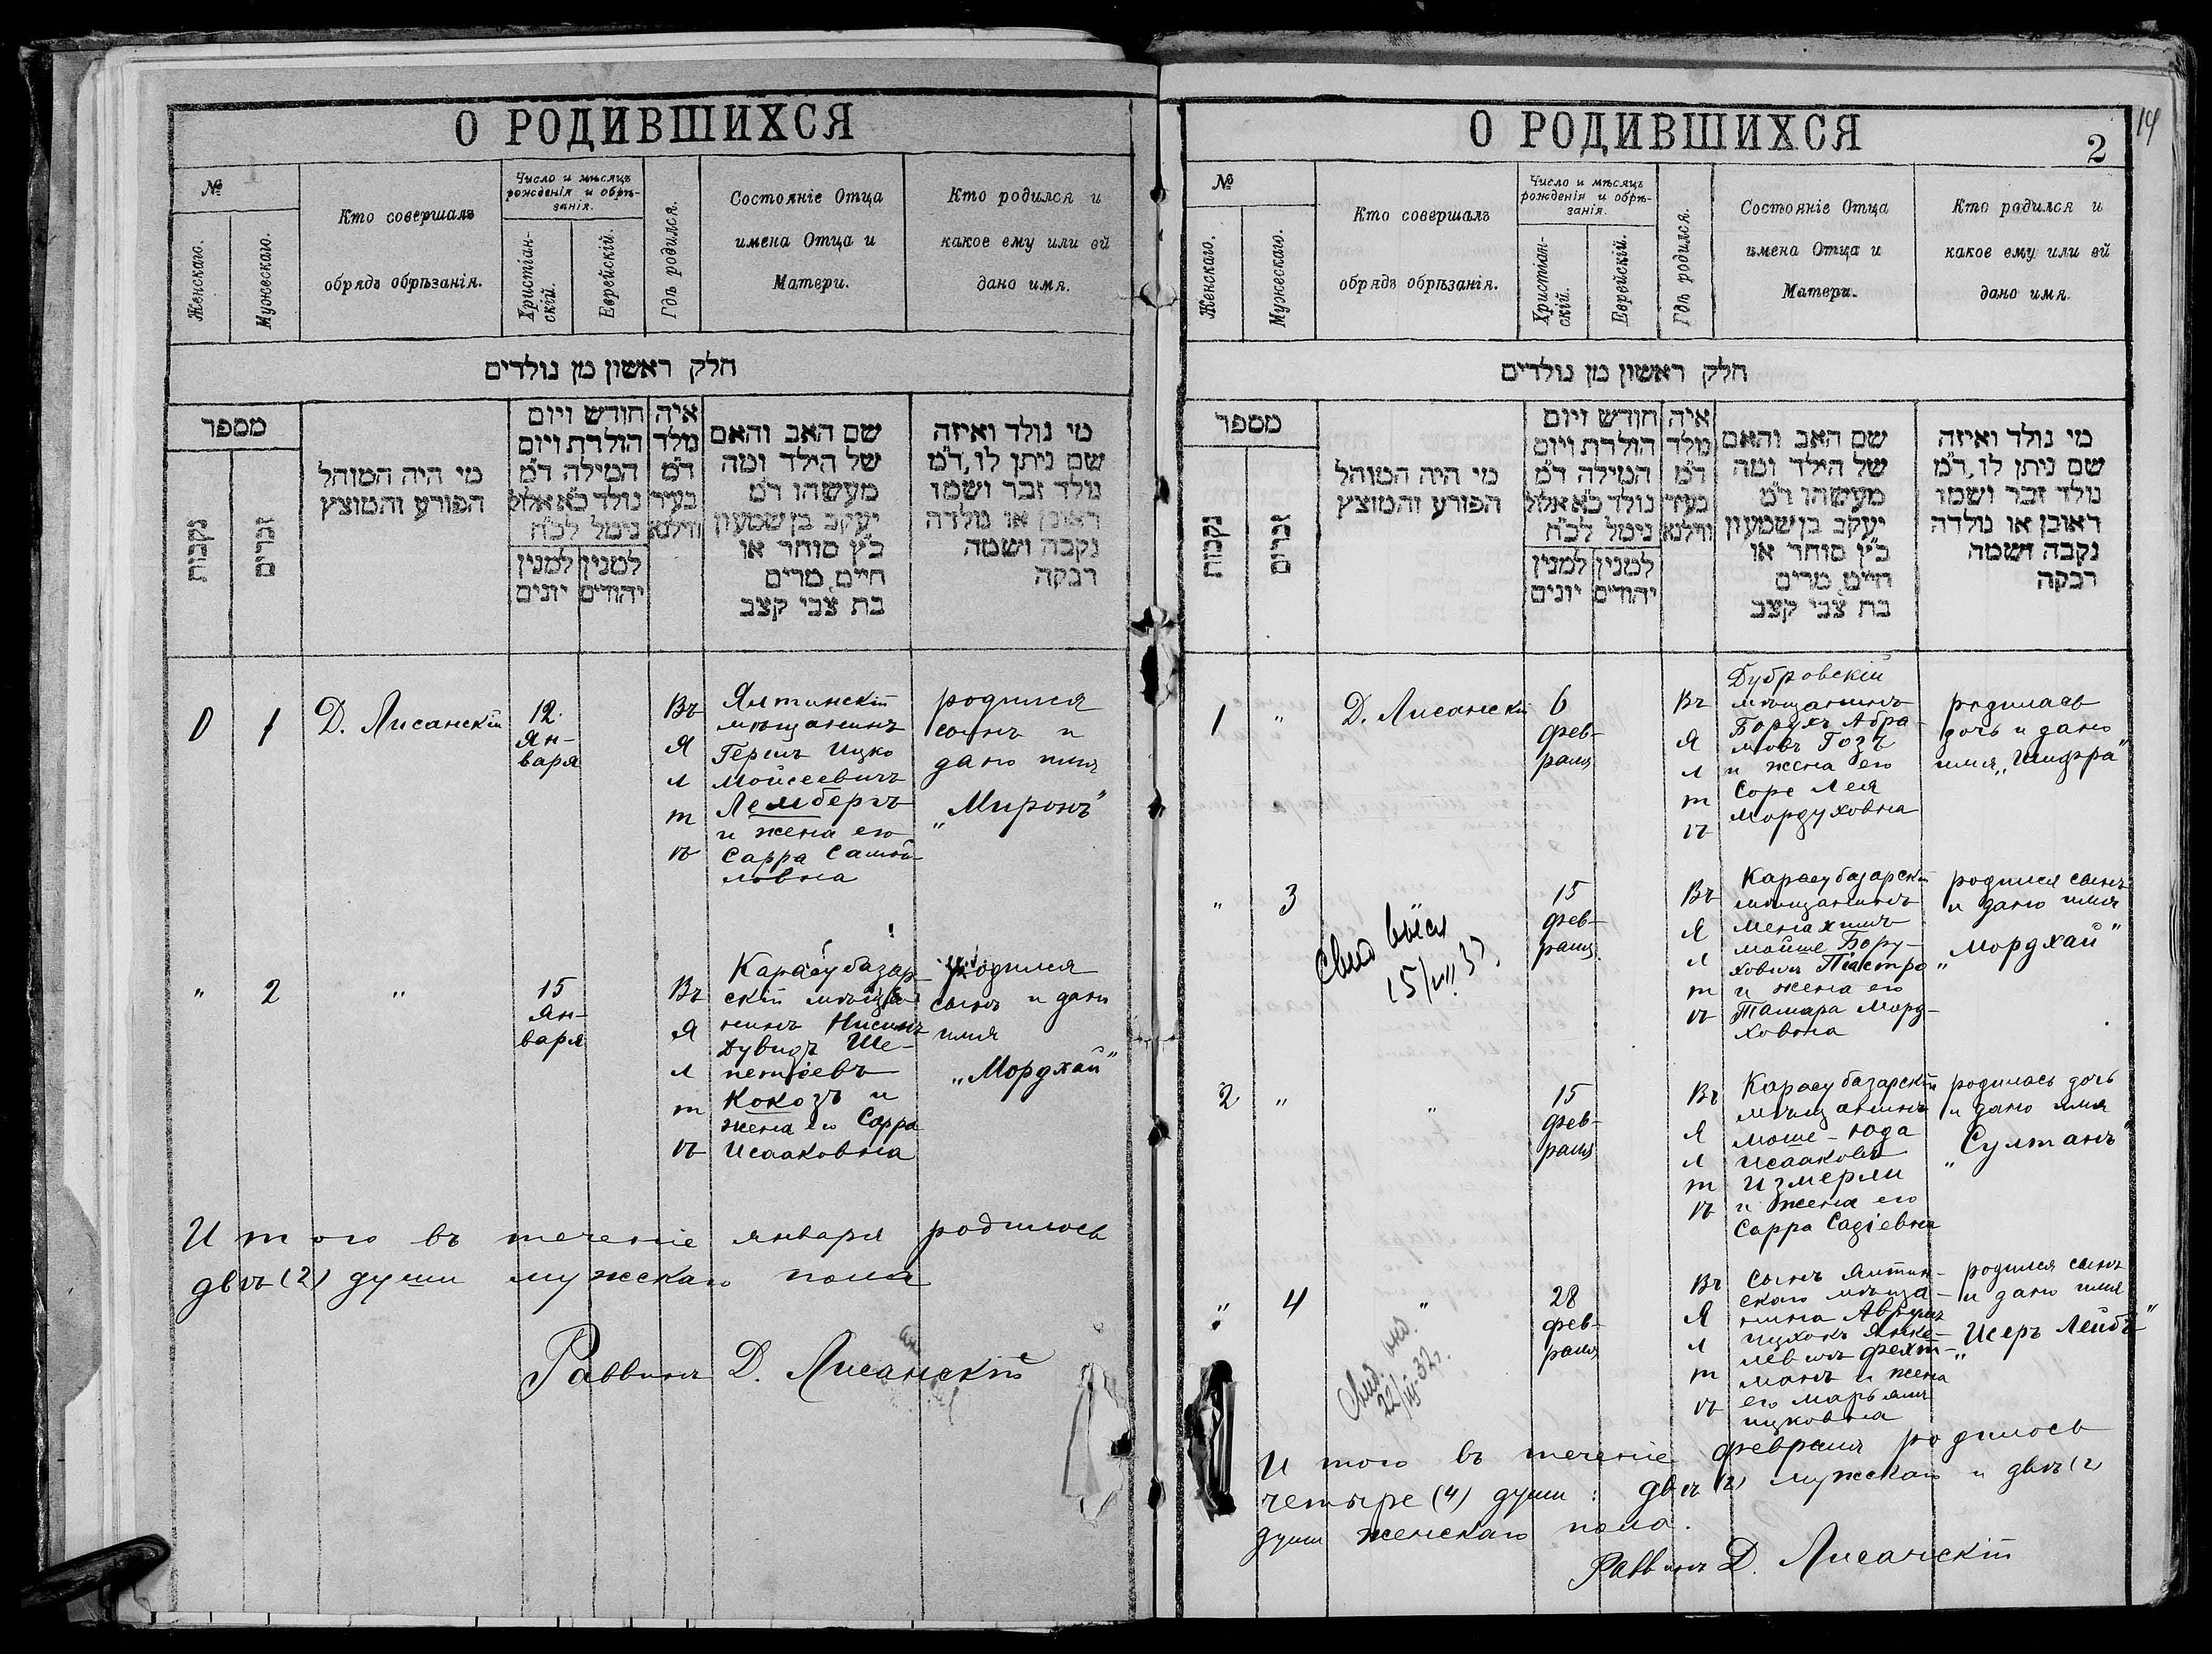 О РОДИВШИХСЯ
№
Женскаго.
Мужескаго.
Кто совершалъ
обрядъ обрѣзанія.
Число и мѣсяцъ
рожденія и обрѣ-
занія.
Христіан-
скій.
Еврейскій.
Гдѣ родился.
Состояніе Отца
имена Отца и
Матери.
Кто родился и
какое ему или ей
дано имя.
חלק ראשון מן נולדים
מספר
נקבות
זכרים
מי היה המוהל
הפורע והמוצץ
חודש ויום
הולדת ויום
המילה ד"מ
נולד כ"א אלול
נימל לכ"ח
למנין יהודים
למנין יונים
איה
נולד
ד"מ
בעיר
ווילנא
שם האב והאם
של הילד ומה
מעשהו ד"מ
יעקב בן שמעון
כ"ץ סוחר או
חייט, מרים
בת צבי קצב
מי נולד ואיזה
שם ניתן לו, ד"מ
נולד זכר ושמו
ראובן או נולדה
נקבה ושמה
רבקה
0
1
Д. Лисанскій
12
Ян-
варя
Въ
Я
л
т
ѣ
Ялтинскій
мѣщанинъ
Гершъ Ицко
Мойсеевичъ
Лембергъ
и жена его
Сарра Самой-
ловна
родился
сынъ и
дано имя
„Миронъ"
"
2
"
15
Ян-
варя
Въ
Я
л
т
ѣ
Карасубазар-
скій мѣща-
нинъ Нисимъ
Дувидъ Ше-
петіевъ
Кокозъ и
жена его Сарра
Исааковна
родился
сынъ и дано
имя
„Мордхай"
Итого въ теченіе января родилось
двѣ (2) души мужскаго пола
Раввинъ Д. Лисанскій
14
О РОДИВШИХСЯ
2
№
Женскаго.
Мужескаго.
Кто совершалъ
обрядъ обрѣзанія.
Число и мѣсяцъ
рожденія и обрѣ-
занія.
Христіан-
скій.
Еврейскій.
Гдѣ родился.
Состояніе Отца
имена Отца и
Матери.
Кто родился и
какое ему или ей
дано имя.
חלק ראשון מן נולדים
מספר
נקבות
זכרים
מי היה המוהל
הפורע והמוצץ
חודש ויום
הולדת ויום
המילה ד"מ
נולד כ"א אלול
נימל לכ"ח
למנין יהודים
למנין יונים
איה
נולד
ד"מ
בעיר
ווילנא
שם האב והאם
של הילד ומה
מעשהו ד"מ
יעקב בן שמעון
כ"ץ סוחר או
חייט, מרים
בת צבי קצב
מי נולד ואיזה
שם ניתן לו, ד"מ
נולד זכר ושמו
ראובן או נולדה
נקבה ושמה
רבקה
1
"
Д. Лисанскій
6
фев-
раля
Въ
Я
л
т
ѣ
Дубровскій
мѣщанинъ
Борухъ Абра-
мовъ Гозъ
и жена его
Соре Лея
Мордуховна
родилась
дочь и дано
имя „Шифра"
"
3
15
фев-
раля
Въ
Я
л
т
ѣ
Карасубазарскій
мѣщанинъ
Менахимъ
Мойше Бору-
ховичъ Піастро
и жена его
Тамара Морд-
ховна
родился сынъ
и дано имя
„Мордхай"
15/VII 37
2
"
"
15
фев-
раля
Въ
Я
л
т
ѣ
Карасубазарскій
мѣщанинъ
Моше-Юда
Исааковъ
Измерли
и жена его
Сарра Садіевна
родилась дочь
и дано имя
„Султанъ"
"
4
"
28
фев-
раля
Въ
Я
л
т
ѣ
Сынъ Ялтин-
скаго мѣща-
нина Аврумъ
Ицхокъ Янке-
левичъ Фехт-
манъ и жена
его Марьямъ
Ицковна
родился сынъ
и дано имя
„Исеръ Лейбъ"
22/III-32г.
Итого въ теченіе февраля родилось
четыре (4) души: двѣ (2) мужскаго и двѣ (2)
души женскаго пола.
Раввинъ Д. Лисанскій